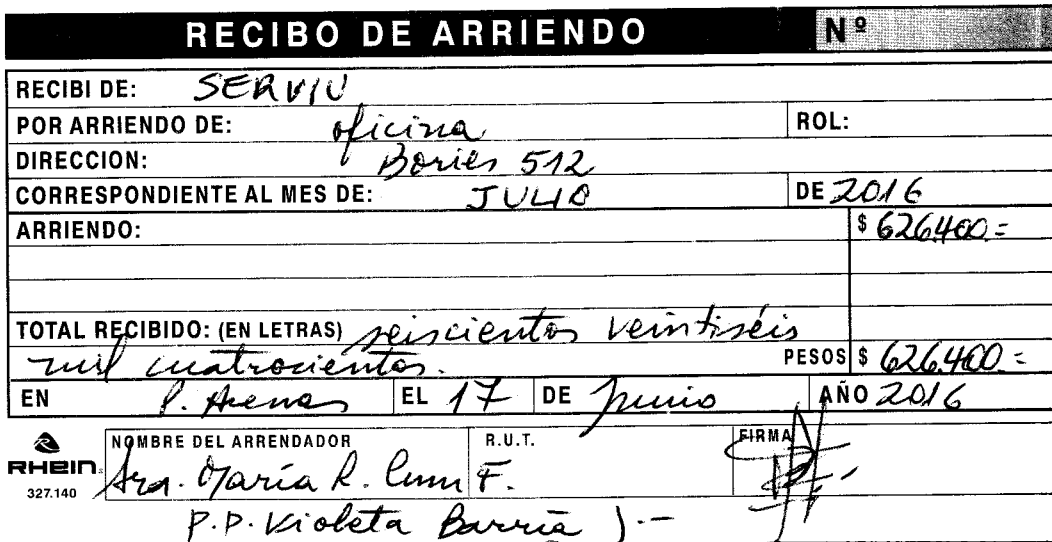 RECIBO DE ARRIENDO Nº
RECIBI DE: SERVIU
POR ARRIENDO DE: oficina ROL:
DIRECCION: Bories 512
CORRESPONDIENTE AL MES DE: JULIO DE 2016
ARRIENDO: $ 626.400.=
TOTAL RECIBIDO: (EN LETRAS) seiscientos veintiséis
mil cuatrocientos. PESOS $ 626.400.=
EN P. Arenas EL 17 DE Junio AÑO 2016
NOMBRE DEL ARRENDADOR R.U.T. FIRMA
RHEIN Sra. María R. F.
327.140
P.P. Violeta Barría ).-